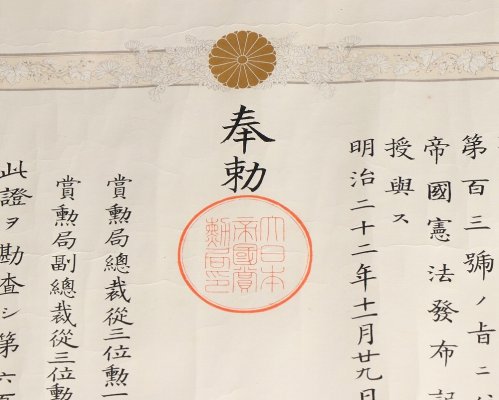 第百三號ノ旨ニ
帝國憲法發布記
授與ス
明治二十二年十一月廿九日
奉勅
大日本
帝國賞
勲局印
賞勲局總裁從三位勲一
賞勲局副總裁從三位勲
此證ヲ勘査シ第六百